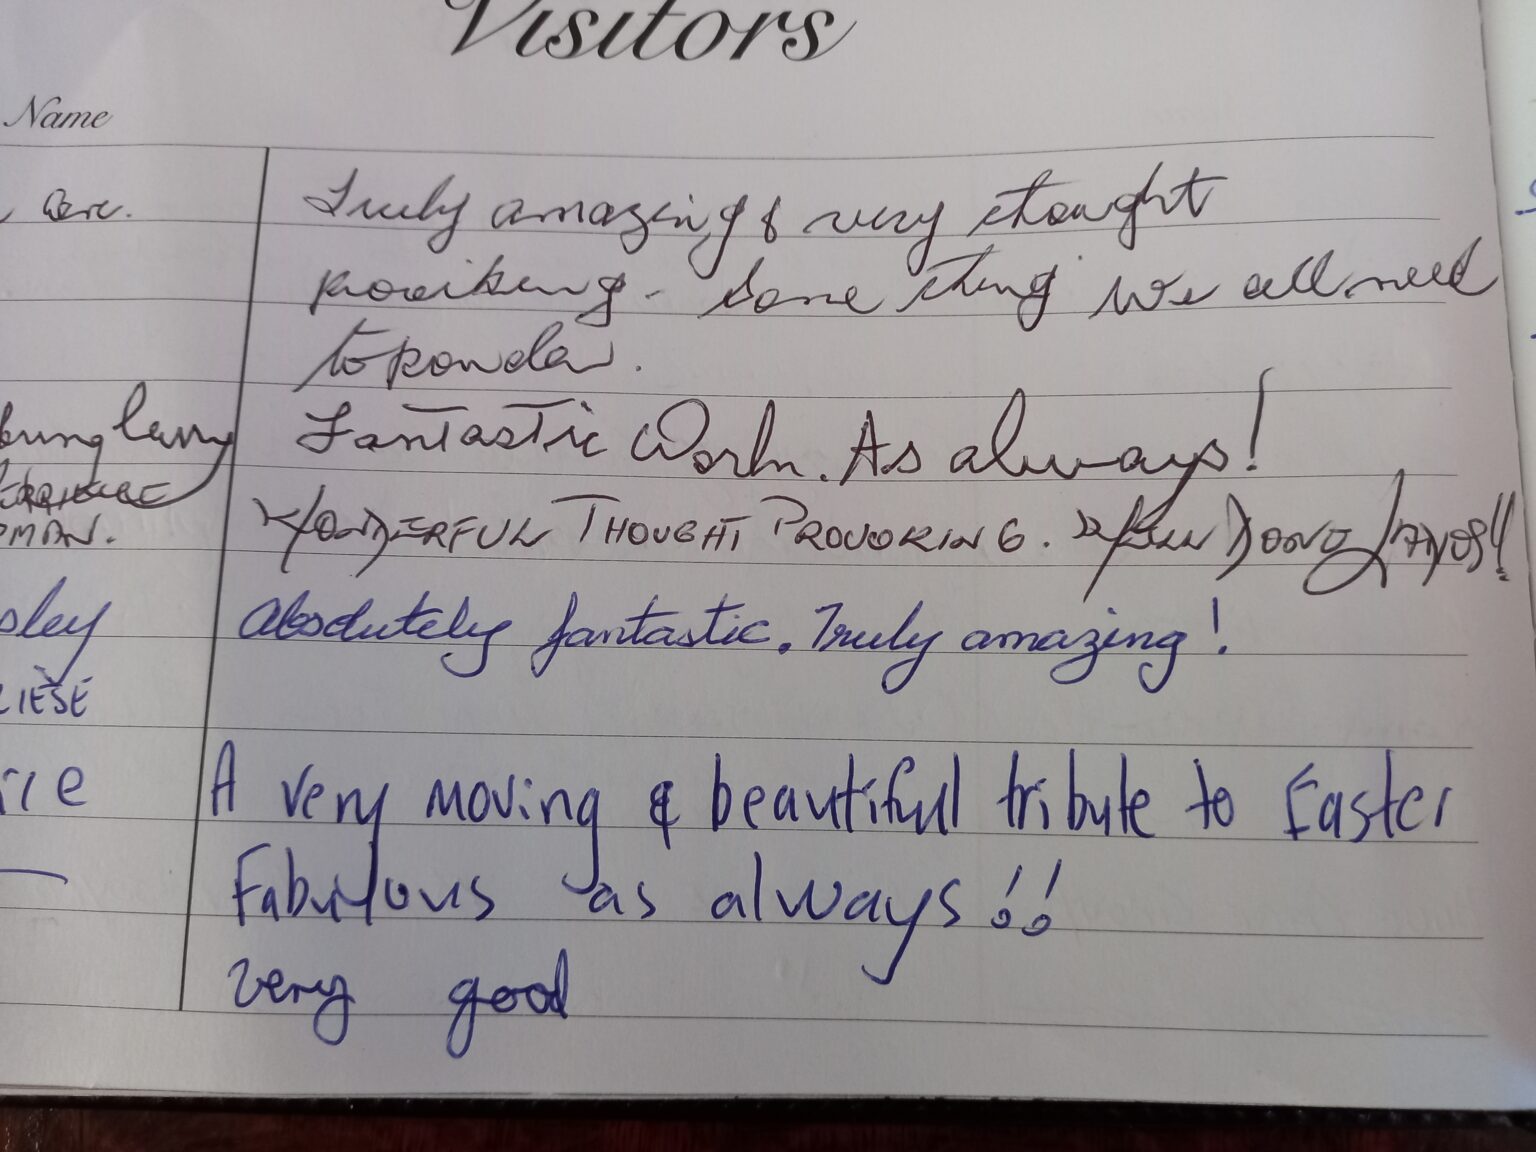 Visitors
Name
Truly amazing & very thought
provoking. Some thing we all need
to ponder.
Fantastic Work. As always!
WONDERFUL THOUGHT PROVOKING. WELL DONE
MAN.
sley Absolutely fantastic. Truly amazing!
LIESE
A very moving & beautiful tribute to Easter
Fabulous as always!!
very good